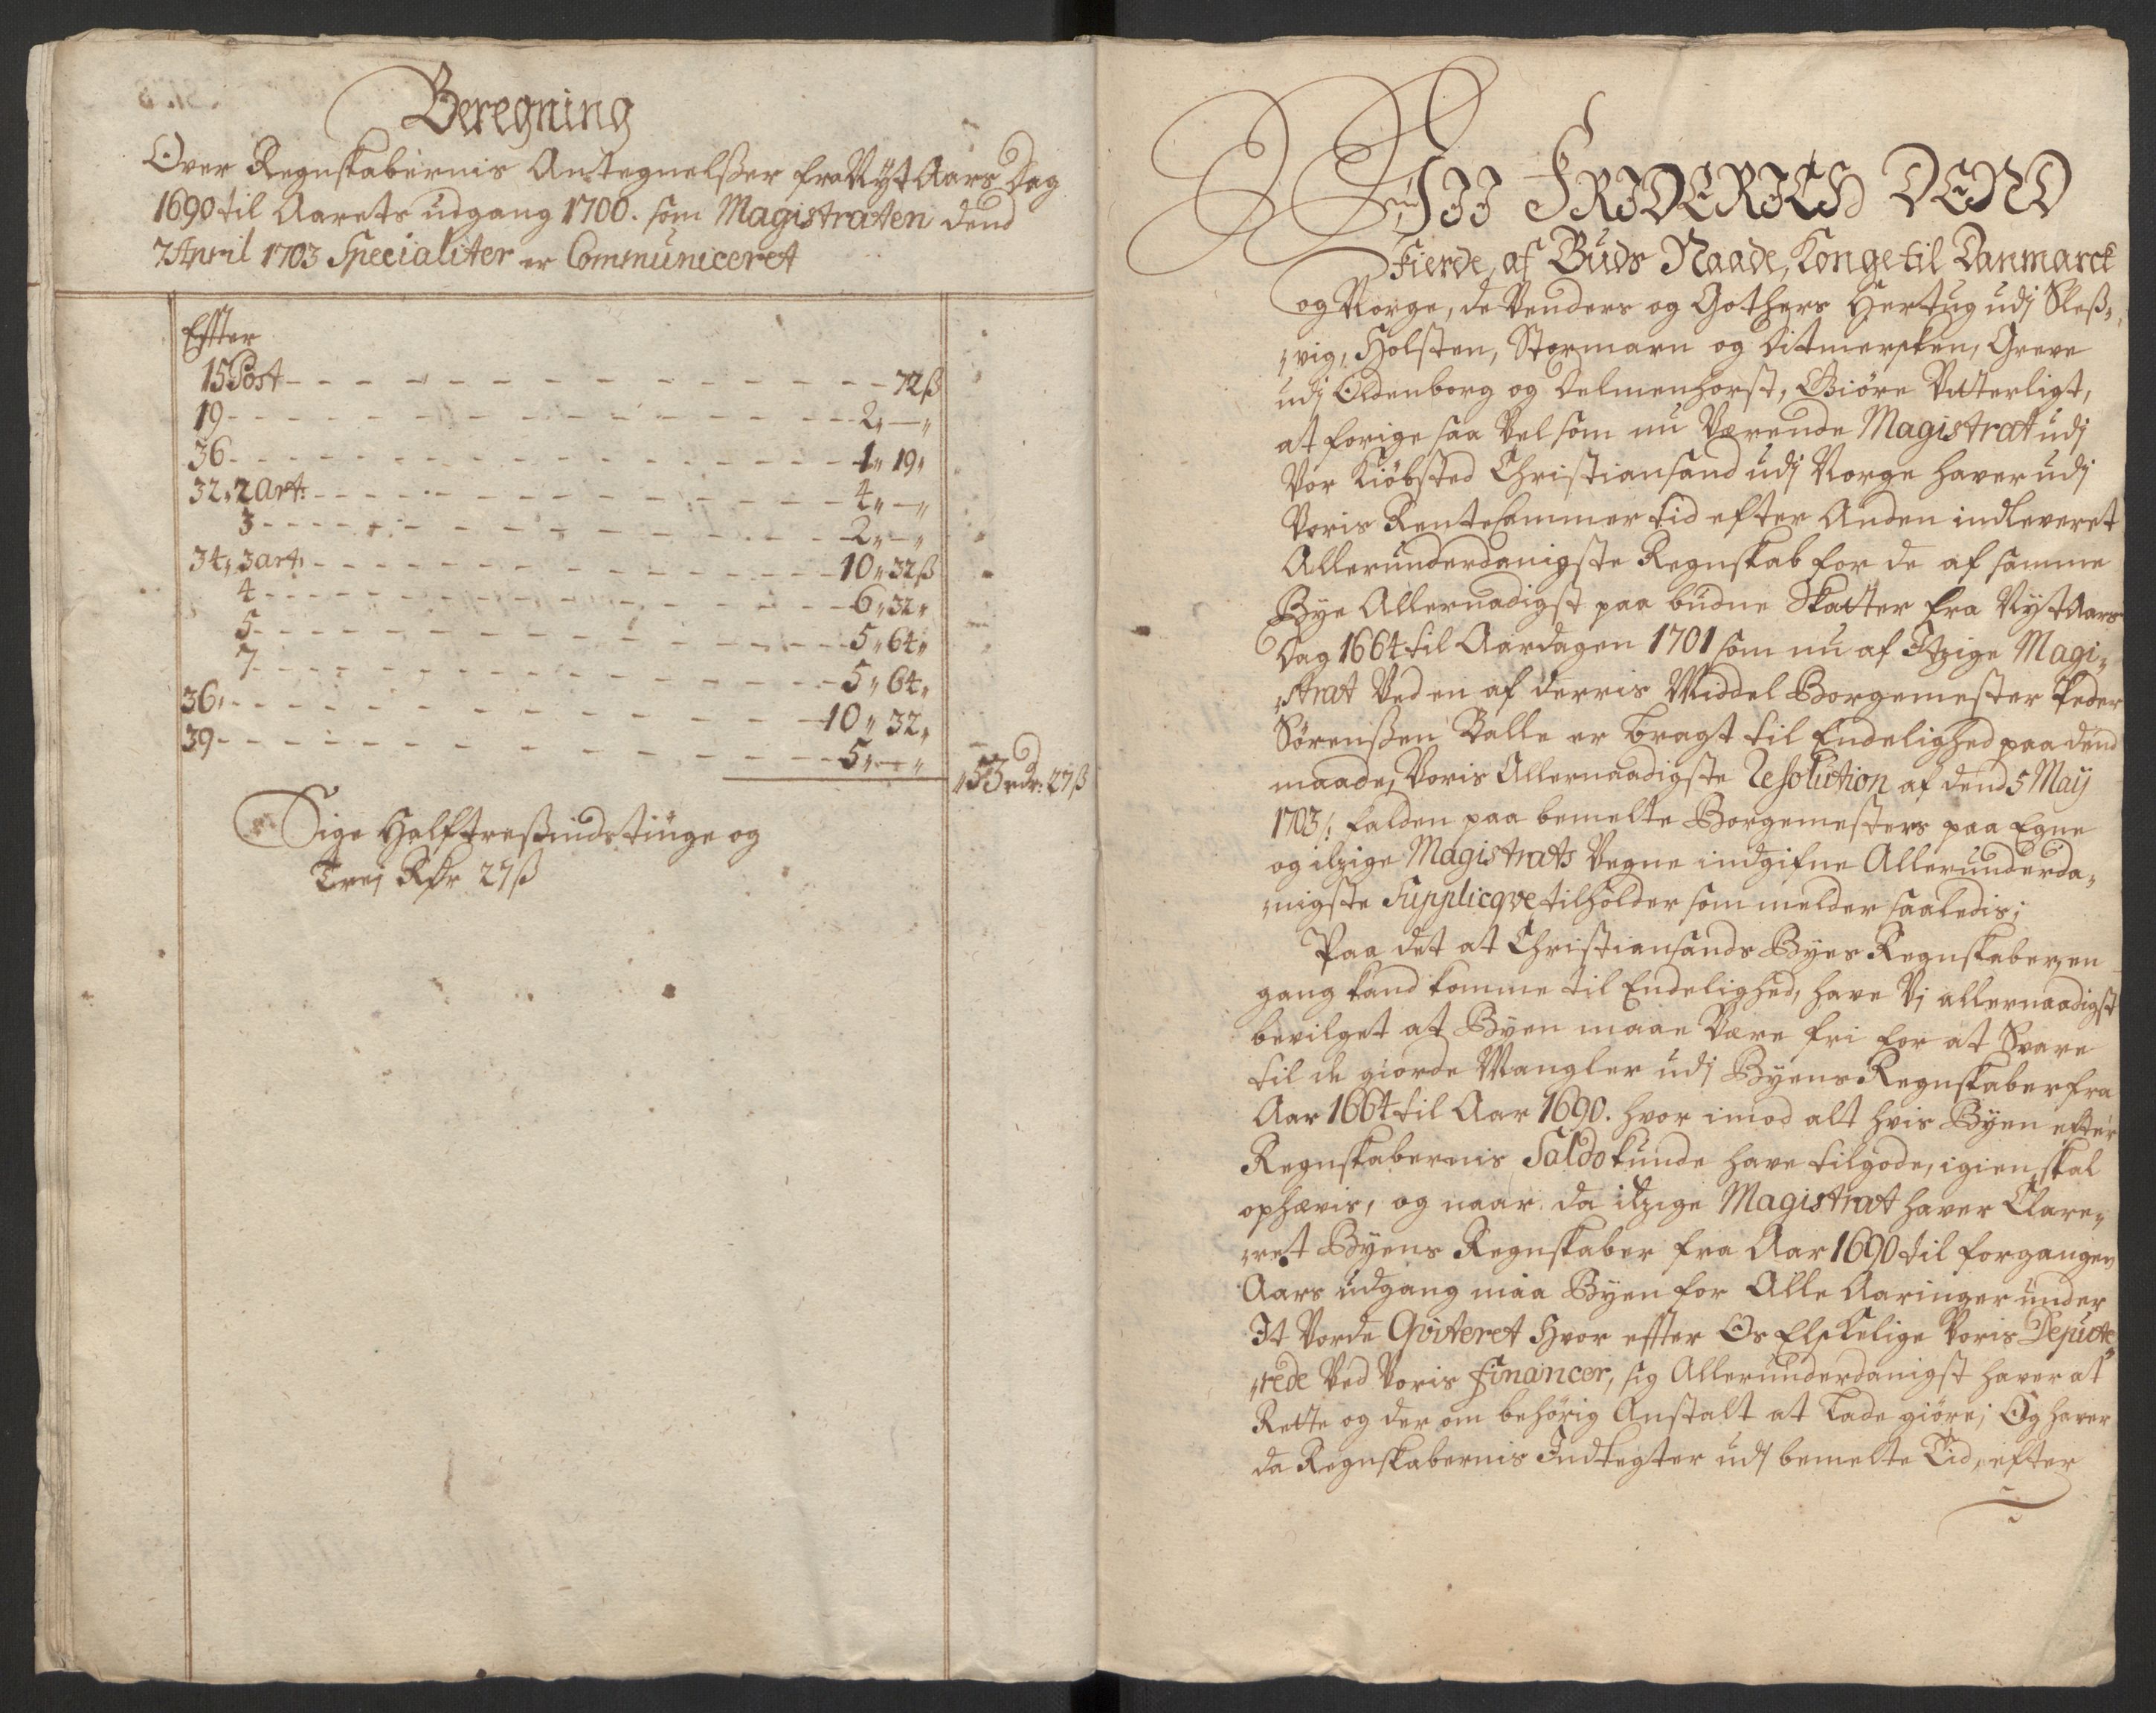 Beregning
Over Regnskabernis Antegnelsser fra Nyt Aars Dag
1690 til Aarets udgang 1700. som Magistraten dend
7 April 1703 Specialiter er Communiceret
Effter
15 Post - - - 72 ß
19 - - - 2 „ — „
36 - - - 1 „ 19 „
32 „ 2 Art: - - - 4 „ — „
3 - - - 2 „ — „
34 „ 3 art: - - - 10 „ 32 ß
4 - - - 6 „ 32 „
5 - - - 5 „ 64 „
7 - - - 5 „ 64 „
36 „ - - - 10 „ 32 „
39 - - - 5 „ — „
„ 53 rdr: 27 ß
Sige Halftressindstiuge og
Trej Rdr 27 ß
WII FRIDERICH DEND
Fierde, af Guds Naade, Konge til Danmarck
og Norge, de Venders og Gothers Hertug udj Sless„
„vig, Holsten, Stormarn og Ditmersken, Greve
udj Oldenborg og Delmenhorst, Giöre Vitterligt,
at forige saa Vel som nu Værende Magistrat udj
Vor Kiöbsted Christiansand udj Norge haver udj
Voris Rente Cammer tid efter Anden indleveret
Allerunderdanigste Regnskab for de af samme
Bye Allernadigst paa budne Skatter fra Nyt Aars
Dag 1664 til Aardagen 1701 som nu af Itzige Magi„
„strat Ved en af derris Middel Borgemester Peder
Sörenssen Balle er bragt til Endelighed paa dend
maade, Voris Allernaadigste Resolution af dend 5 May
1703 /: falden paa bemelte Borgemesters paa Egne
og itzige Magistrats Vegne indgifne Allerunderda„
„nigste Supplicqve tilholder som melder saaledis;
Paa det at Christiansands Byes Regnskaber, en
gang kand komme til Endelighed, have Vj allernaadigst
bevilget at Byen maae Være fri for at Svare
til de giorde Mangler udj Byens Regnskaber fra
Aar 1664 til Aar 1690. hvor imod alt hvis Byen efter
Regnskabernis Saldo kunde have tilgode, igien skal
ophævis, og naar da itzige Magistrat haver Clare„
„ret Byens Regnskaber fra Aar 1690 til forgangen
Aars udgang maa Byen for Alle Aaringer under
It Vorde Qviteret Hvor effter Os Elskelige Voris Depute„
„rede Ved Voris Financer, sig Allerunderdanigst haver at
Rette og der om behörig Anstalt at Lade giöre; Og haver
da Regnskabernis Indtegter udj bemelte Tid, efter